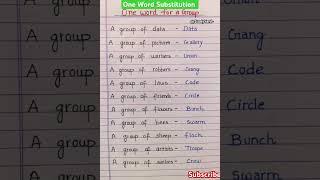 One Word Substitution
One word for a Group.
A group of data - Data
A group of picture - Gallery
A group of workers - Union
A group of robbers - Gang
A group of laws - Code
A group of friends - Circle
A group of flowers - Bunch
A group of bees - Swarm
A group of sheep - Flock
A group of artists - Troupe
A group of sailors - Crew
Subscribe